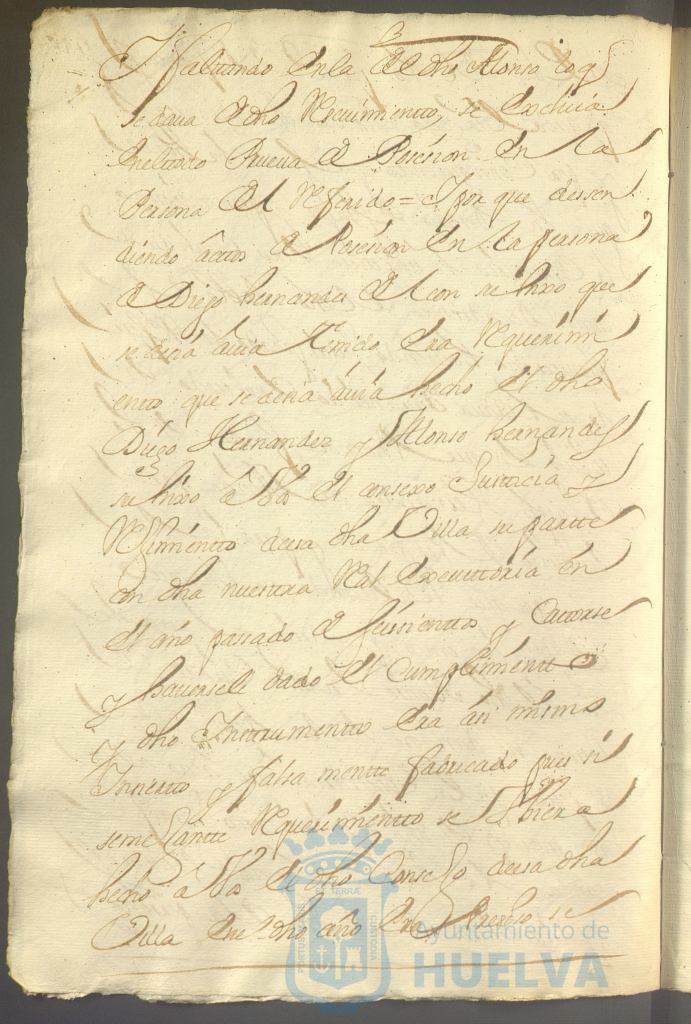 Y faltando en la de dho Alonso lo q
se daua de dho Recuimiento, se excluia
en el todo Prueua de Posesion en la
Persona del Referido = Y por que desen
diendo actos de Posesion en la persona
de Diego hernandez de Leon su hixo que
se decia auia tenido era Requerimi
ento que se decia auia hecho el dho
Diego Hernandez y Alonso hernandez
su hixo a Vos el consexo Justicia y
Reximiento de esa dha Villa su partte
con dha nuestra Real Executtoria en
el año pasado de seissientos y Catorse
y hauersele dado el Cumplimentto
y dho Instrumentto era asi mismo
Incierto y falsa mentte fabricado pues si
semejantte Requerimientto se Vbiera
hecho a Vos el dho Consejo de esa dha
Villa en el dho año era Presiso se
Ayuntamiento de
HUELVA